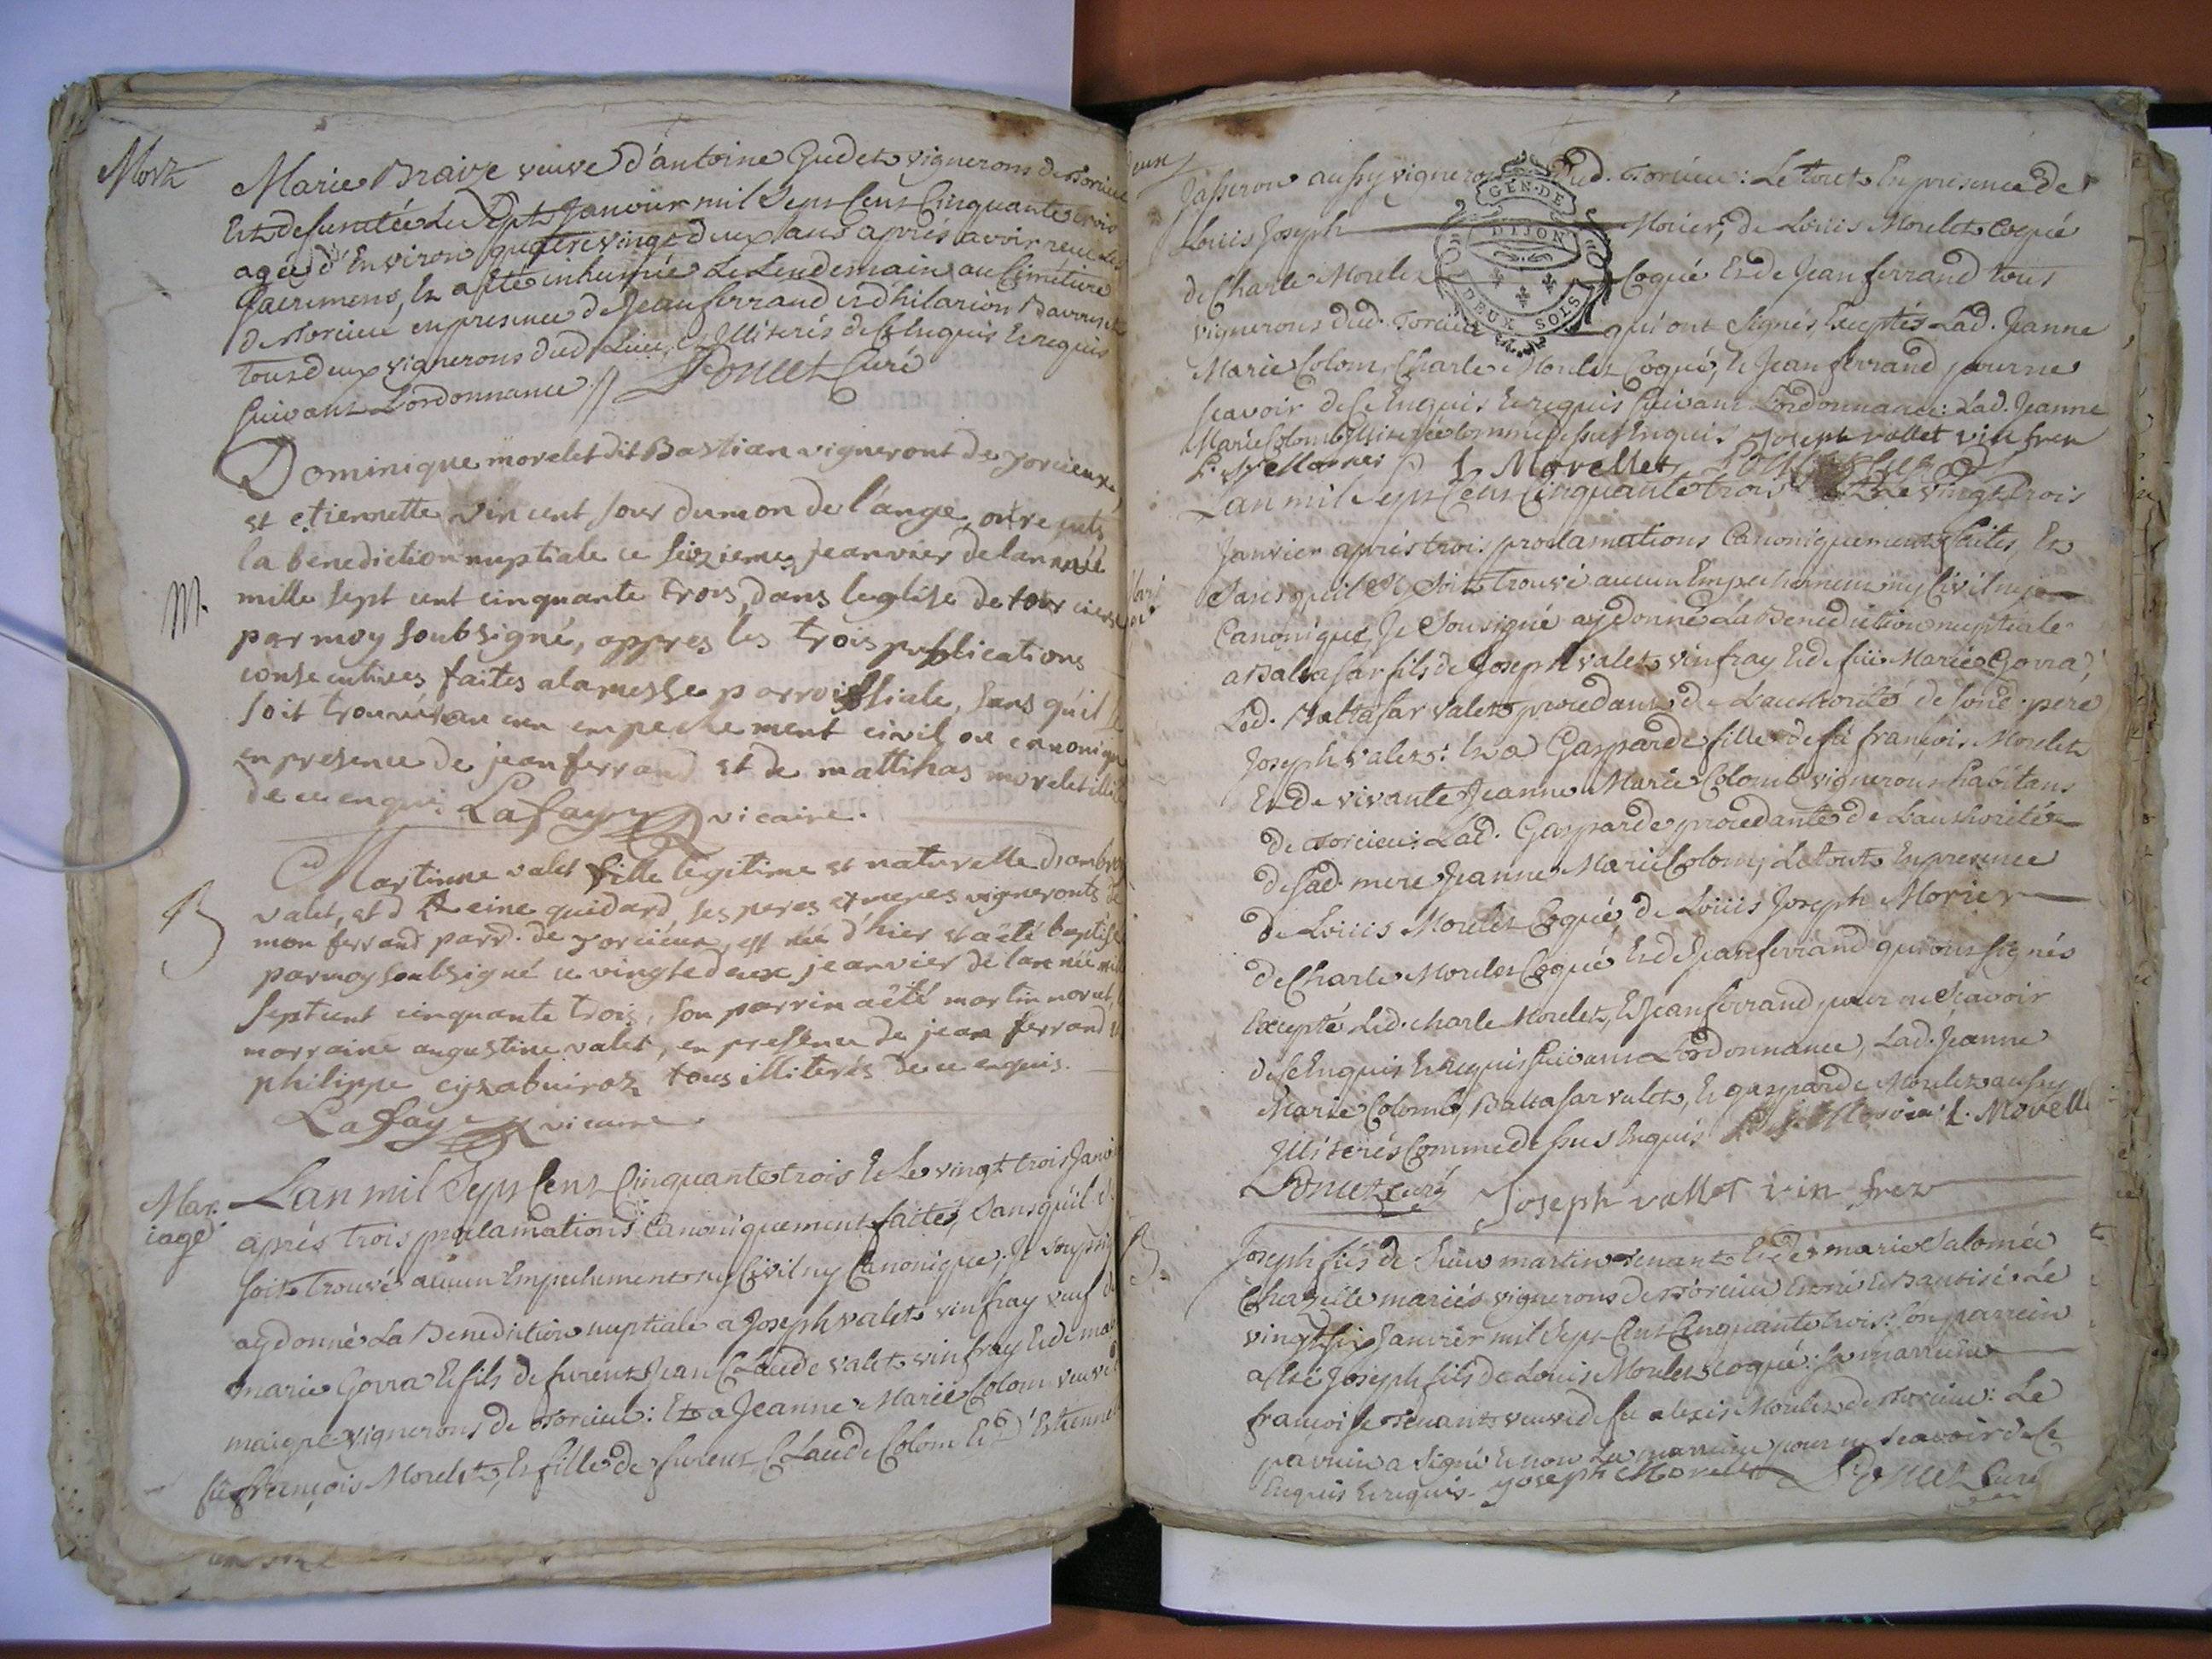 Mort
Marie Braize veuve d'antoine Gudet vignerons de Torcieu
Est decédée Le Sept Janvier mil Sept Cent Cinquante trois
agée d'Environ quatre vingt deux ans aprés avoir receu Les
Sacremens, Et a eté inhumée Le Lendemain au Cimetiere
de Torcieu en presence de Jean ferrand et d'hilarion
Tous deux vignerons dud. Lieu, Illiterés de ce Enquis Et requis
Suivant L'ordonnance // Curé
Dominique morelet dit Bastian vigneront de Torcieux,
et etiennette vincent sour du mon de l'ange, ont reçuts
la benediction nuptiale ce seizieme jeanvier de lannéé
M.
mille sept cent cinquante trois, dans leglise de torcieux
par moy soubsigné, appres les trois publications
consecutives faites a la messe parroissiale, sans qu'il
soit trouvé aucun empechement civil ou canonique
en presence de jean ferrand et de matthias morelet
de ce enquis. Lafay vicaire.
B
Martinne valet fille legitime et naturelle d'
valet, et d Reine quidard, ses peres et meres vigneronts de
mon ferrand parr. de Torcieux, est née d'hier et a été baptisé
par moy soubsigné ce vingtedeux jeanvier de lannéé mil
sept cent cinquante trois, son parrin a été martin morel,
marraine augustine valet, en presence de jean ferrand
philippe tous illiterés de ce enquis.
Lafay vicaire
Mariage
Lan mil Sept Cent Cinquante trois Et Le vingt trois Janvier
aprés trois proclamations Canoniquement faites, Sans qu'il
soit trouvé aucun Empechement ny Civil ny Canonique, Je Sousigné
ay donné La Benediction nuptiale a Joseph valet vinfray veuf de
marie Gorra Et fils de furent Jean Claude valet vinfray Et de
vignerons de Torcieu: Et a Jeanne Marie Colom veuve
fû françois Morelet, Et fille de furent Claude Colom Et d'Estiennette
Jasseron aussy vignerons Dud. Torcieu: Le tout En presence de
GEN. DE DIJON
DEUX SOLS
Louis Joseph Morier, de Louis Morelet Coqué
de Charle Morelet Coqué Et de Jean ferrand tous
vignerons dud. Torcieu qui ont Signés, Exceptés Lad. Jeanne
Marie Colom, Charle Morelet Coqué, Et Jean ferrand pour ne
Scavoir de ce Enquis Et requis Suivant L'ordonnance: Lad. Jeanne
Marie Colomb Illiterée Comme dessus Enquis. Joseph vallet vin frer
L. J. Morier L. Morellet
Lan mil Sept Cent Cinquante trois Et Le vingt trois
Janvier aprés trois proclamations Canoniquement faites, Et
Sans qu'il Se Soit trouvé aucun Empechement ny Civil ny
Canonique, Je Sousigné ay donné La Benediction nuptiale
a Baltasar fils de Joseph valet vinfray Et de fûe Marie Gorra,
Led. Baltasar valet procedant de L'authorité de Sond. pere
Joseph valet: Et a Gasparde fille de fû françois Morelet
Et de vivante Jeanne Marie Colomb vignerons habitans
de Torcieu: Lad. Gasparde procedante de L'authorité
de Sad. mere Jeanne Marie Colom, Le tout En presence
de Louis Morelet Coqué, de Louis Joseph Morier
de Charle Morelet Coqué Et de Jean ferrand qui ont Signés
Excepté Led. charle Morelet, Et Jean ferrand pour ne Scavoir
de ce Enquis Et requis Suivant L'ordonnance, Lad. Jeanne
Marie Colomb, Baltasar valet, Et gasparde Morelet aussy
Illiterés Comme dessus Enquis L. J. Morier L. Morell
curé Joseph vallet vin frer
B.
Joseph fils de Sieur martin Tenant Et de marie Salomée
Chazelle mariés vignerons de Torcieu Est né Et Bautisé Le
vingt six Janvier mil Sept Cent Cinquante trois: Son parrein
a eté Joseph fils de Louis Morelet coqué: Sa marreine
françoise Tenant veuve de fû alexis Morelet de Torcieu: Le
parrein a Signé Et non La marreine pour ne Scavoir de ce
Enquis Et requis. joseph Morellet Curé